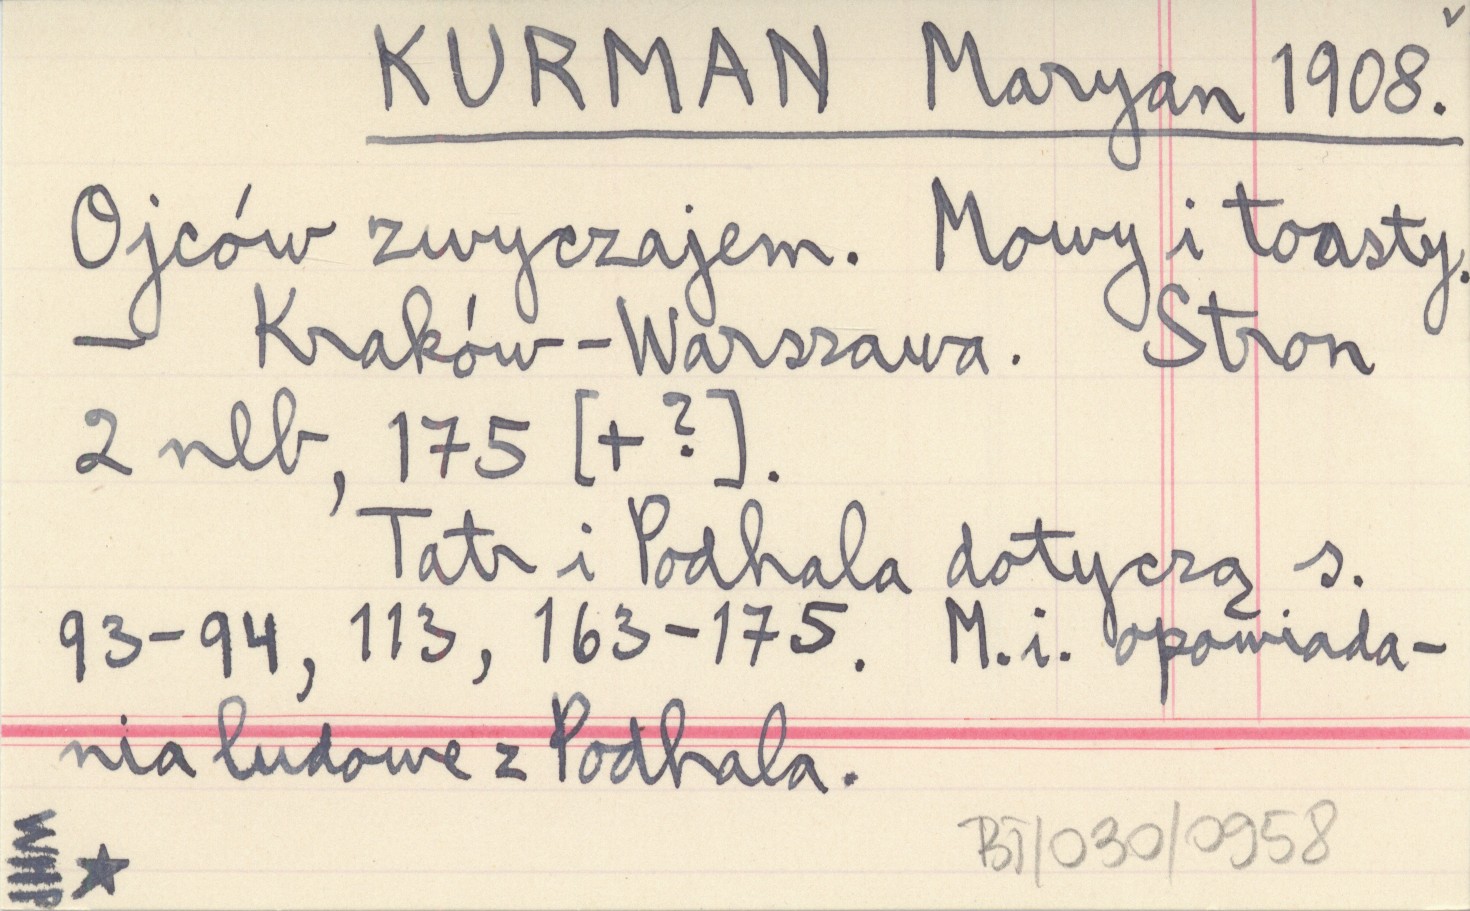 KURMAN Maryan 1908.
Ojców zwyczajem. Mowy i toasty.
— Kraków-Warszawa. Stron
2 nlb, 175 [+ ?].
Tatr i Podhala dotyczą s.
93-94, 113, 163-175. M.i. opowiada-
nia ludowe z Podhala.
BT/030/0958